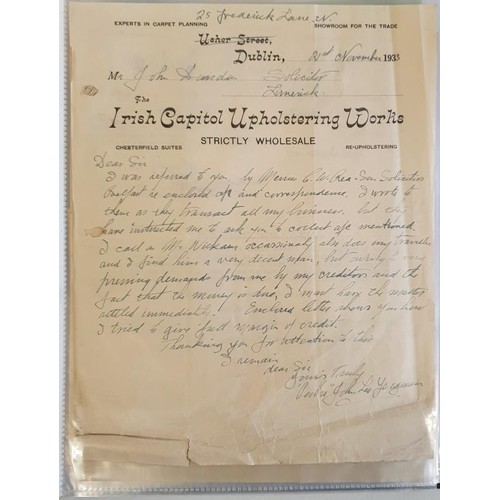 25 Frederick Lane, N.
EXPERTS IN CARPET PLANNING
SHOWROOM FOR THE TRADE
Usher Street,
Dublin, 21st November 1933
Mr John Solicitor
Limerick.
The
Irish Capitol Upholstering Works
STRICTLY WHOLESALE
CHESTERFIELD SUITES
RE-UPHOLSTERING
Dear Sir
I was referred to you by Messrs C. W. Rea Son Solicitors
Belfast re enclosed a/c and correspondence. I wrote to
them as they transact all my business. but they
have instructed me to ask you to collect a/c mentioned.
I call on Mr. occassionaly also does my traveller
and I find him a very decent man, but owing to very
pressing demands from me by my creditors and the
fact that the money is due, I must have the matter
settled immediately. Enclosed letter shows you how
I tried to give full margin of credit.
Thanking you for attention to this
I remain
Dear Sir
Yours Truly
John Leo